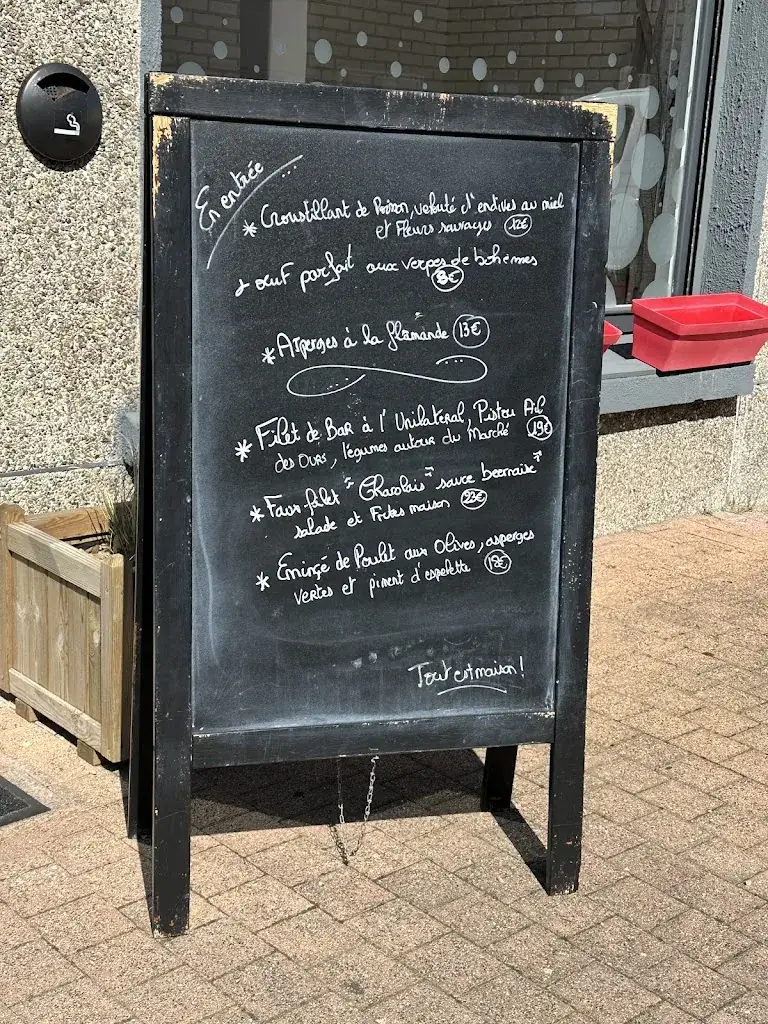 En entrée
* Croustillant de Poisson, velouté d'endives au miel
et Fleurs sauvages 12€
* œuf parfait aux verpes de bohèmes
8€
* Asperges à la flamande 13€
* Filet de Bar à l'Unilatéral, Pistou Ail
des Ours, légumes autour du Marché 19€
* Faux-filet "Charolais" sauce bearnaise"
salade et Frites maison 23€
* Eminçé de Poulet aux Olives, asperges
vertes et piment d'espelette 18€
Tout est maison !